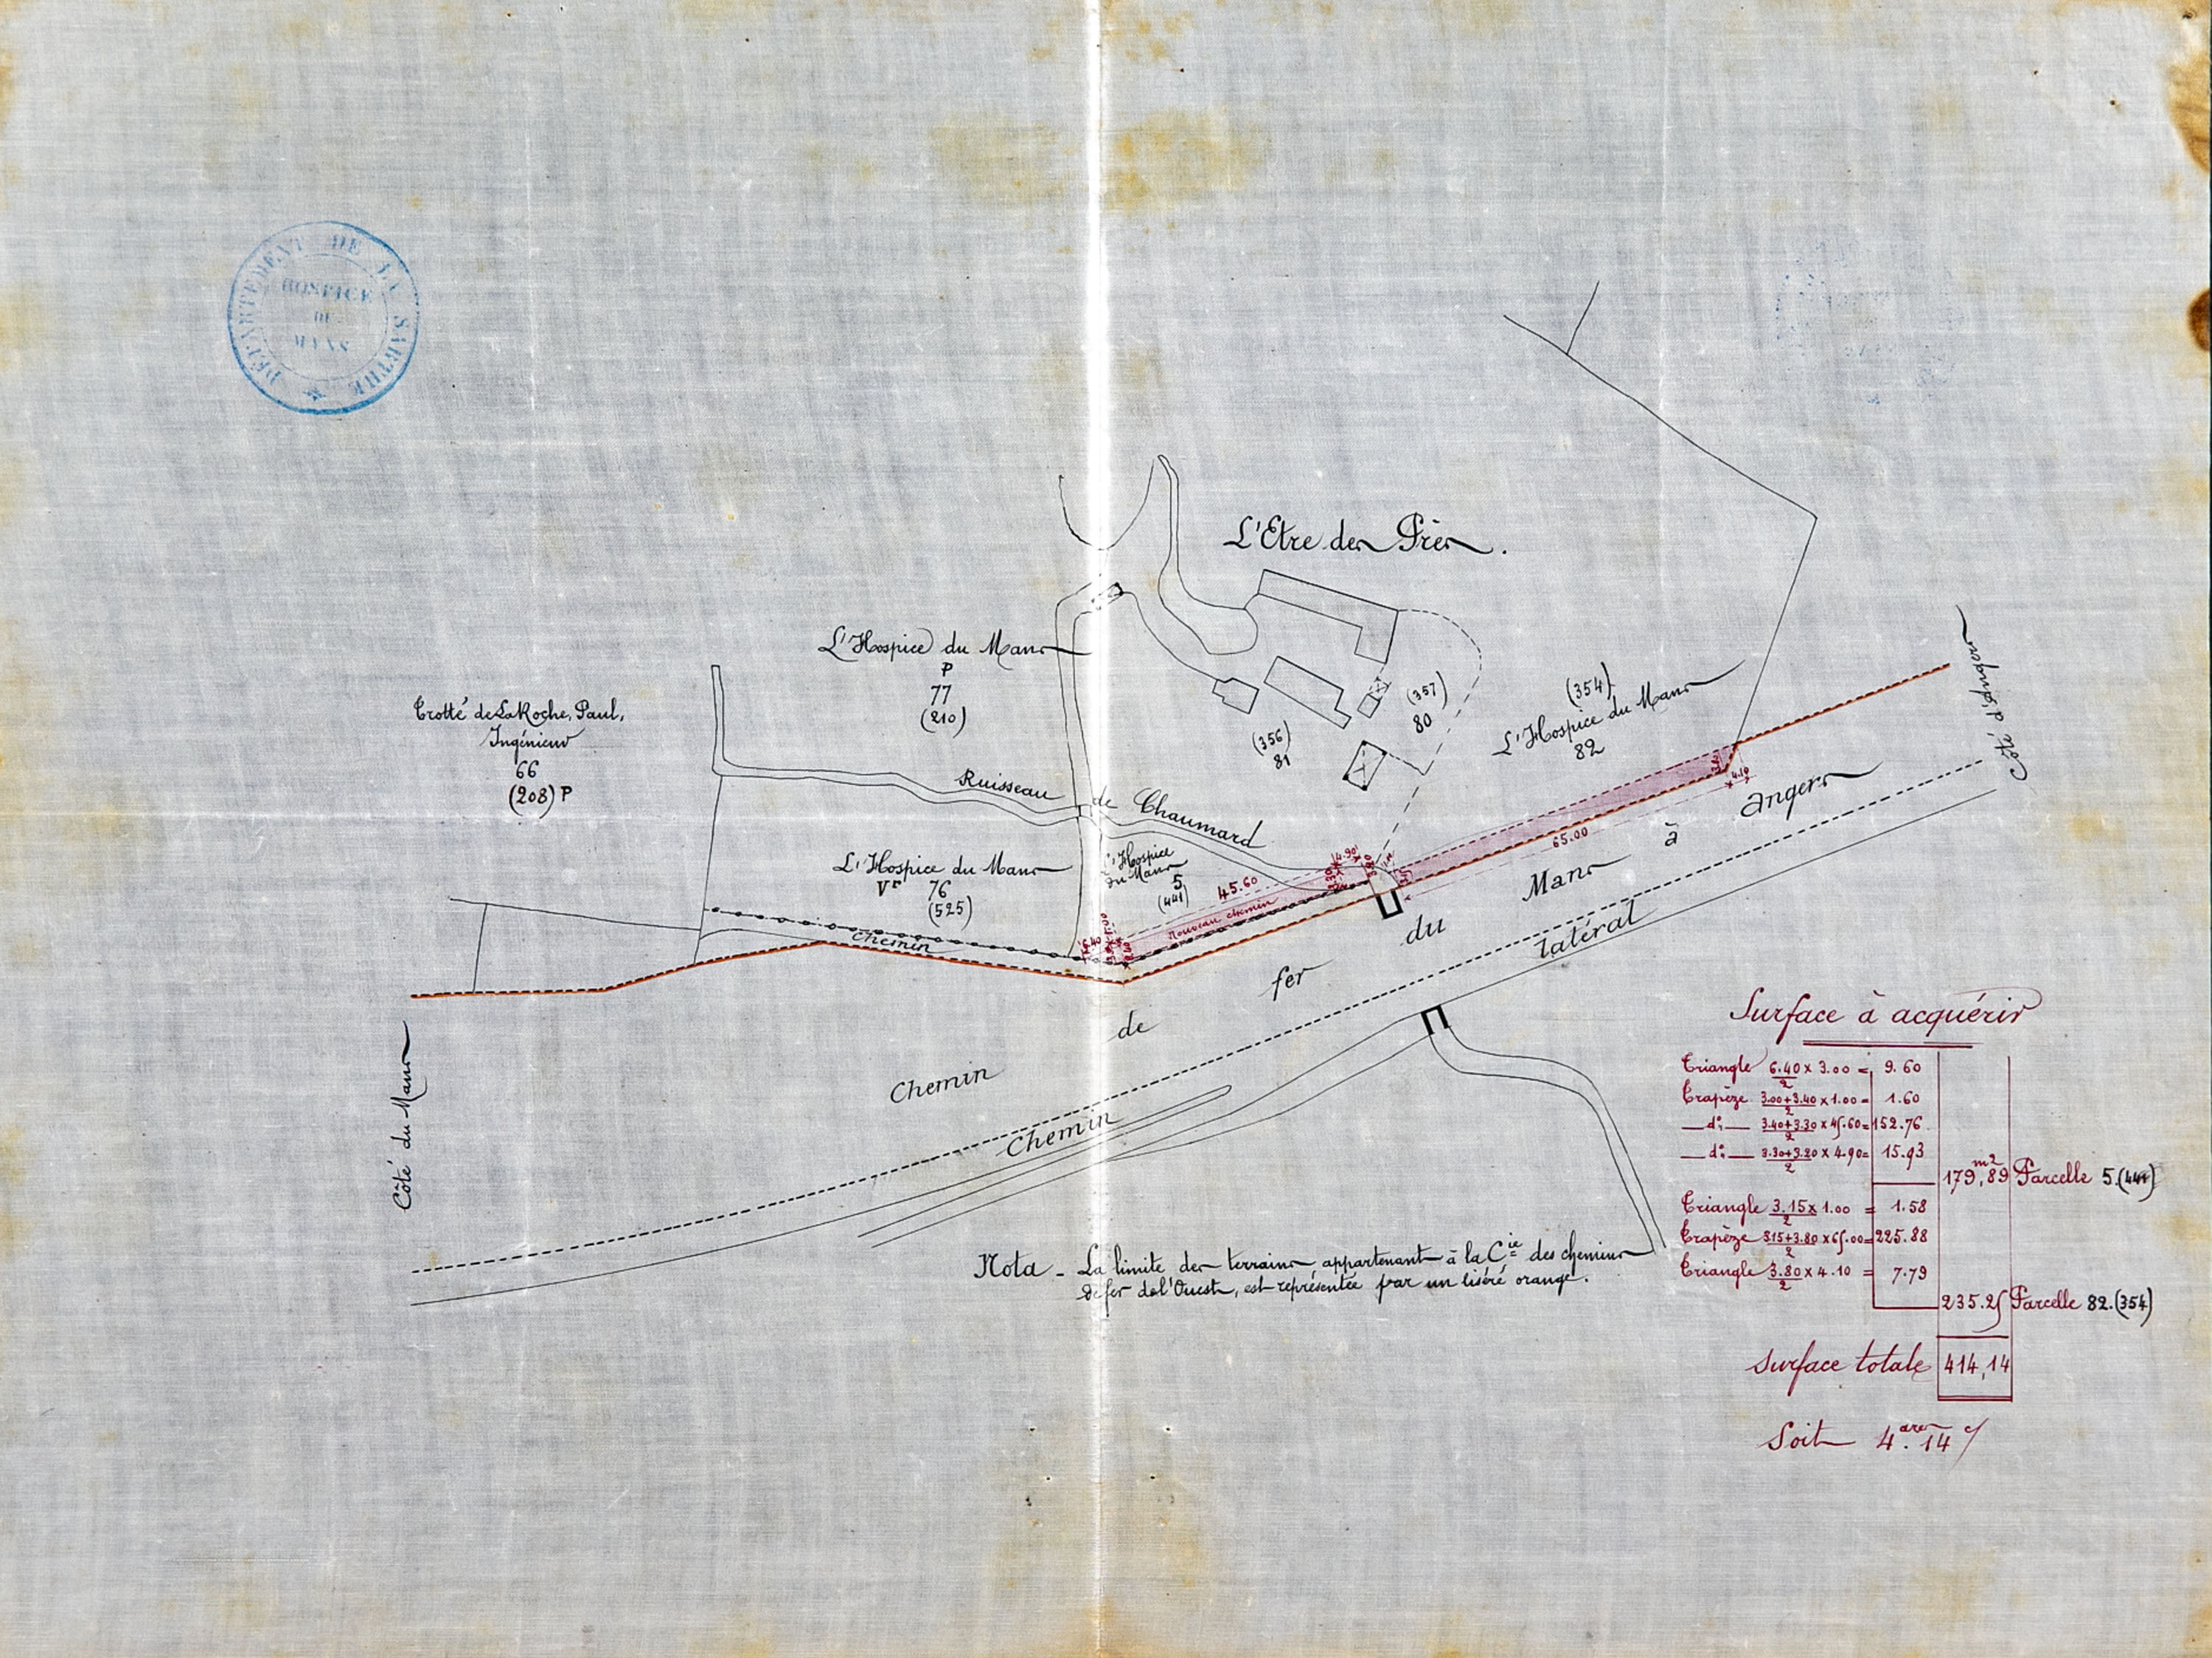 DÉPARTEMENT DE LA SARTHE
HOSPICE
DU
MANS
L'Etre des Près.
L'Hospice du Mans
P
77
(210)
Trotté de La Roche, Paul,
Ingénieur
66
(208) P
(357)
80
(356)
81
(354)
L'Hospice du Mans
82
Côté d'Angers
Ruisseau de Chaumard
L'Hospice du Mans
Vr 76
(525)
L'Hospice
du Mans
5
(441)
Chemin
6.40
45.60
4.90
Nouveau chemin
65.00
4.10
Chemin de fer du Mans à Angers
Chemin latéral
Côté du Mans
Nota - La limite des terrains appartenant à la Cie des chemins
de fer de l'Ouest, est représentée par un liséré orange.
Surface à acquérir
Triangle 6.40 x 3.00 = 9.60
2
Trapèze 3.00+3.40 x 1.00 = 1.60
2
—do— 3.40+3.30 x 45.60 = 152.76
2
—do— 3.30+3.20 x 4.90 = 15.93
2
179,m2 89 Parcelle 5.(441)
Triangle 3.15 x 1.00 = 1.58
2
Trapèze 3.15+3.80 x 65.00 = 225.88
2
Triangle 3.80 x 4.10 = 7.79
2
235.25 Parcelle 82.(354)
Surface totale 414,14
Soit 4 ares. 14 c